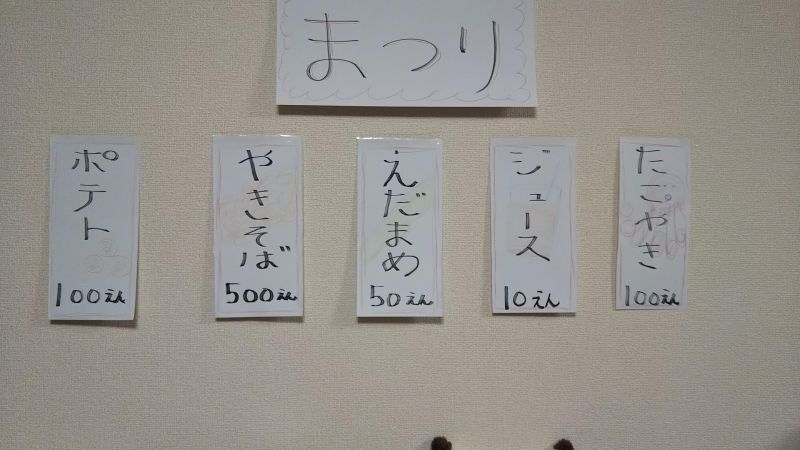 まつり
ポテト
100えん
やきそば
500えん
えだまめ
50えん
ジュース
10えん
たごやき
100えん